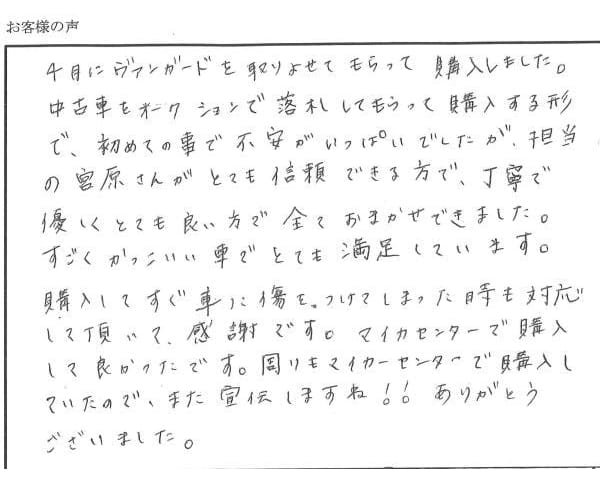 お客様の声
4月にヴァンガードを取りよせてもらって購入しました。
中古車をオークションで落札してもらって購入する形
で、初めての事で不安がいっぱいでしたが、担当
の宮原さんがとても信頼できる方で、丁寧で
優しくとても良い方で全ておまかせできました。
すごくかっこいい車でとても満足しています。
購入してすぐ車に傷をつけてしまった時も対応
して頂いて、感謝です。マイカセンターで購入
して良かったです。周りもマイカーセンターで購入し
ていたので、また宣伝しますね!!ありがとう
ございました。